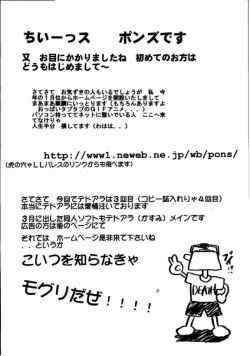 ちいーっス　ポンズです
又　お目にかかりましたね　初めてのお方は
どうもはじめまして〜
さてさて　お気ずきの人もいるでしょうが　私　今
年の１月位からホームページを開設いたしまして
まあまあ順調にいっとります（もちろんありますよ
おっぱいタプタプのＧＩＦアニメ．．．）
パソコン持っててネットに繋いでいる人　ここへ来
てなけりゃ
人生半分　損してます（わはは．．）
http://www1.neweb.ne.jp/wb/pons/
（虎の穴ゃＬＬパレスのリンクからも飛べます）
さてさて　今回でデトアラは３回目（コピー誌入れりゃ４回目）
本当にデトアラには愛情注いでおります
３月に出した同人ソフトもデトアラ（かすみ）メインです
広告の方は後のページにて
それでは　ホームページ是非来て下さいね
．．というか
こいつを知らなきゃ
モグリだぜ！！！！
DEATH